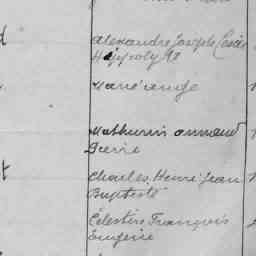 Alexandre Joseph
Hyppolyte
Marie ange
Mathurin armand
Pierre
Charles Henri Jean
Baptiste
Célestin François
Eugène